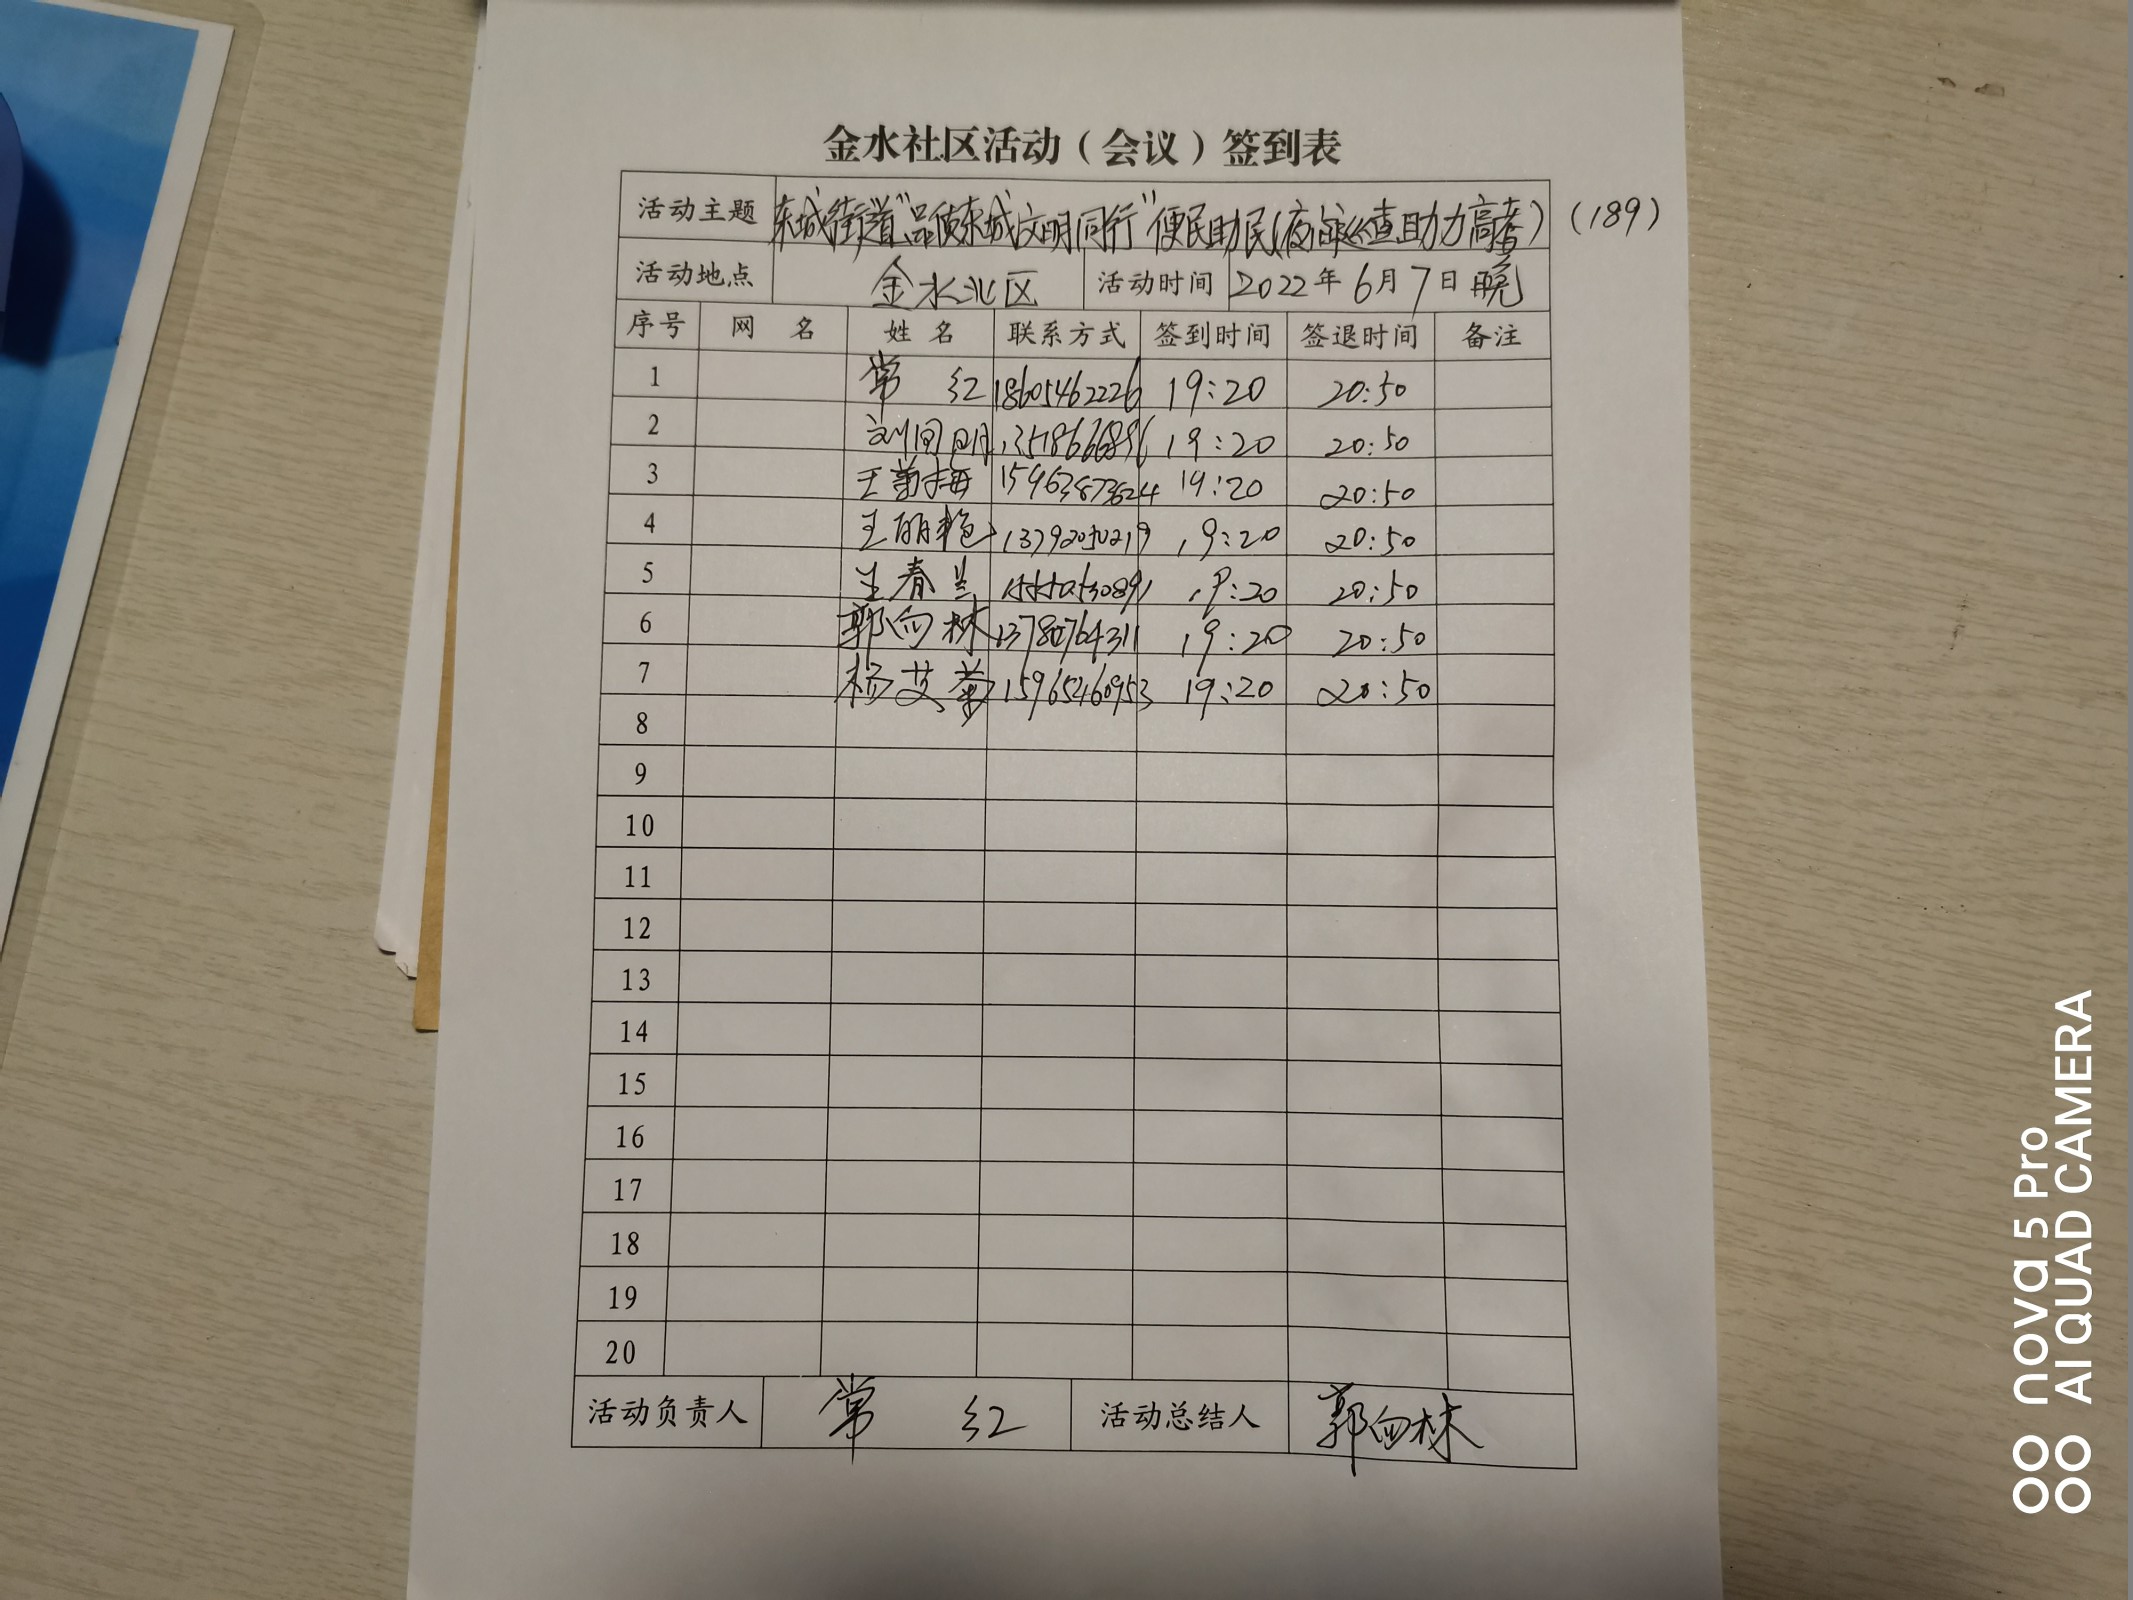 金水社区活动（会议）签到表
活动主题 东城街道"品质东城文明同行"便民助民(夜间巡查助力高考)（189）
活动地点 金水北区 活动时间 2022年6月7日晚
序号 网 名 姓 名 联系方式 签到时间 签退时间 备注
1 常 红 18605462226 19:20 20:50
2 19:20 20:50
3 王菊梅 15963873624 19:20 20:50
4 王丽艳 13792050219 19:20 20:50
5 王春兰 15550530891 19:20 20:50
6 郭向林 19:20 20:50
7 杨艾菊 15965460953 19:20 20:50
8
9
10
11
12
13
14
15
16
17
18
19
20
活动负责人 常 红 活动总结人 郭向林
nova 5 Pro
AI QUAD CAMERA